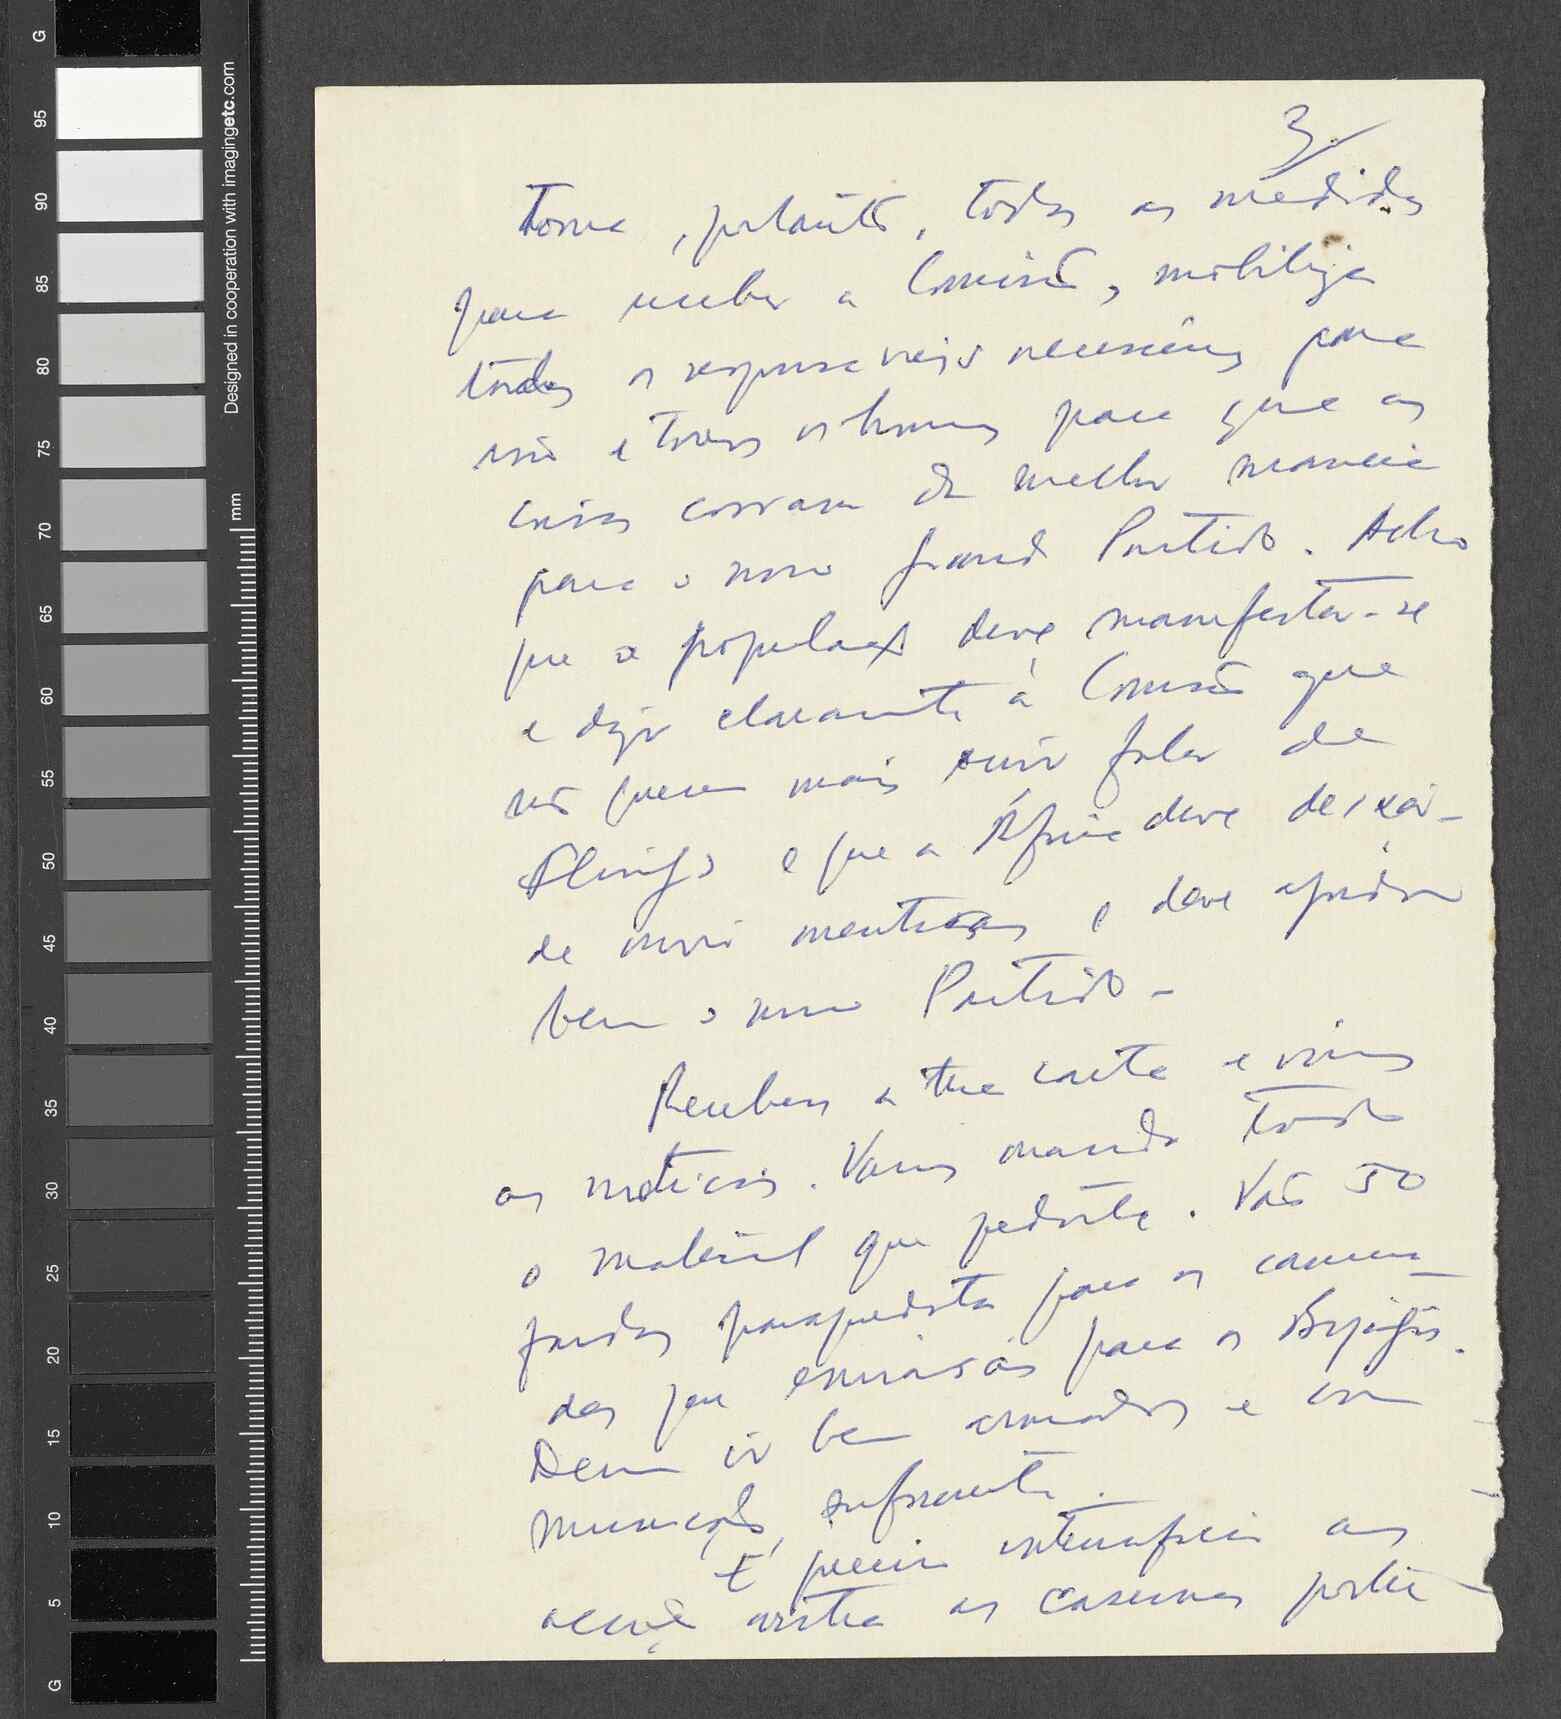 3.
Toma, portanto, todas as medidas
para receber a Comissão, mobiliza
todos os responsaveis necessários para
isso e todos os homens para que as
coisas corram da melhor maneira
para o nosso grande Partido. Acho
que a população deve manifestar-se
e dizer claramente à Comissão que
não querem mais ouvir falar de
e que a África deve deixar-
de ouvir mentiras e deve ajudar
bem o nosso Partido-
Recebemos a tua carta e vimos
as noticias. Vamos mandar todo
o material que pediste. Vão 50
fardas paraquedista para os camara-
das que enviarás para os Bijagós.
Devem ir bem armados e com
munições suficiente.
É preciso intensificar as
acções contra os casernas portu-
G
95
90
85
80
75
70
65
60
55
50
45
40
35
30
25
20
15
10
5
G
mm
Designed in cooperation with imagingetc.com